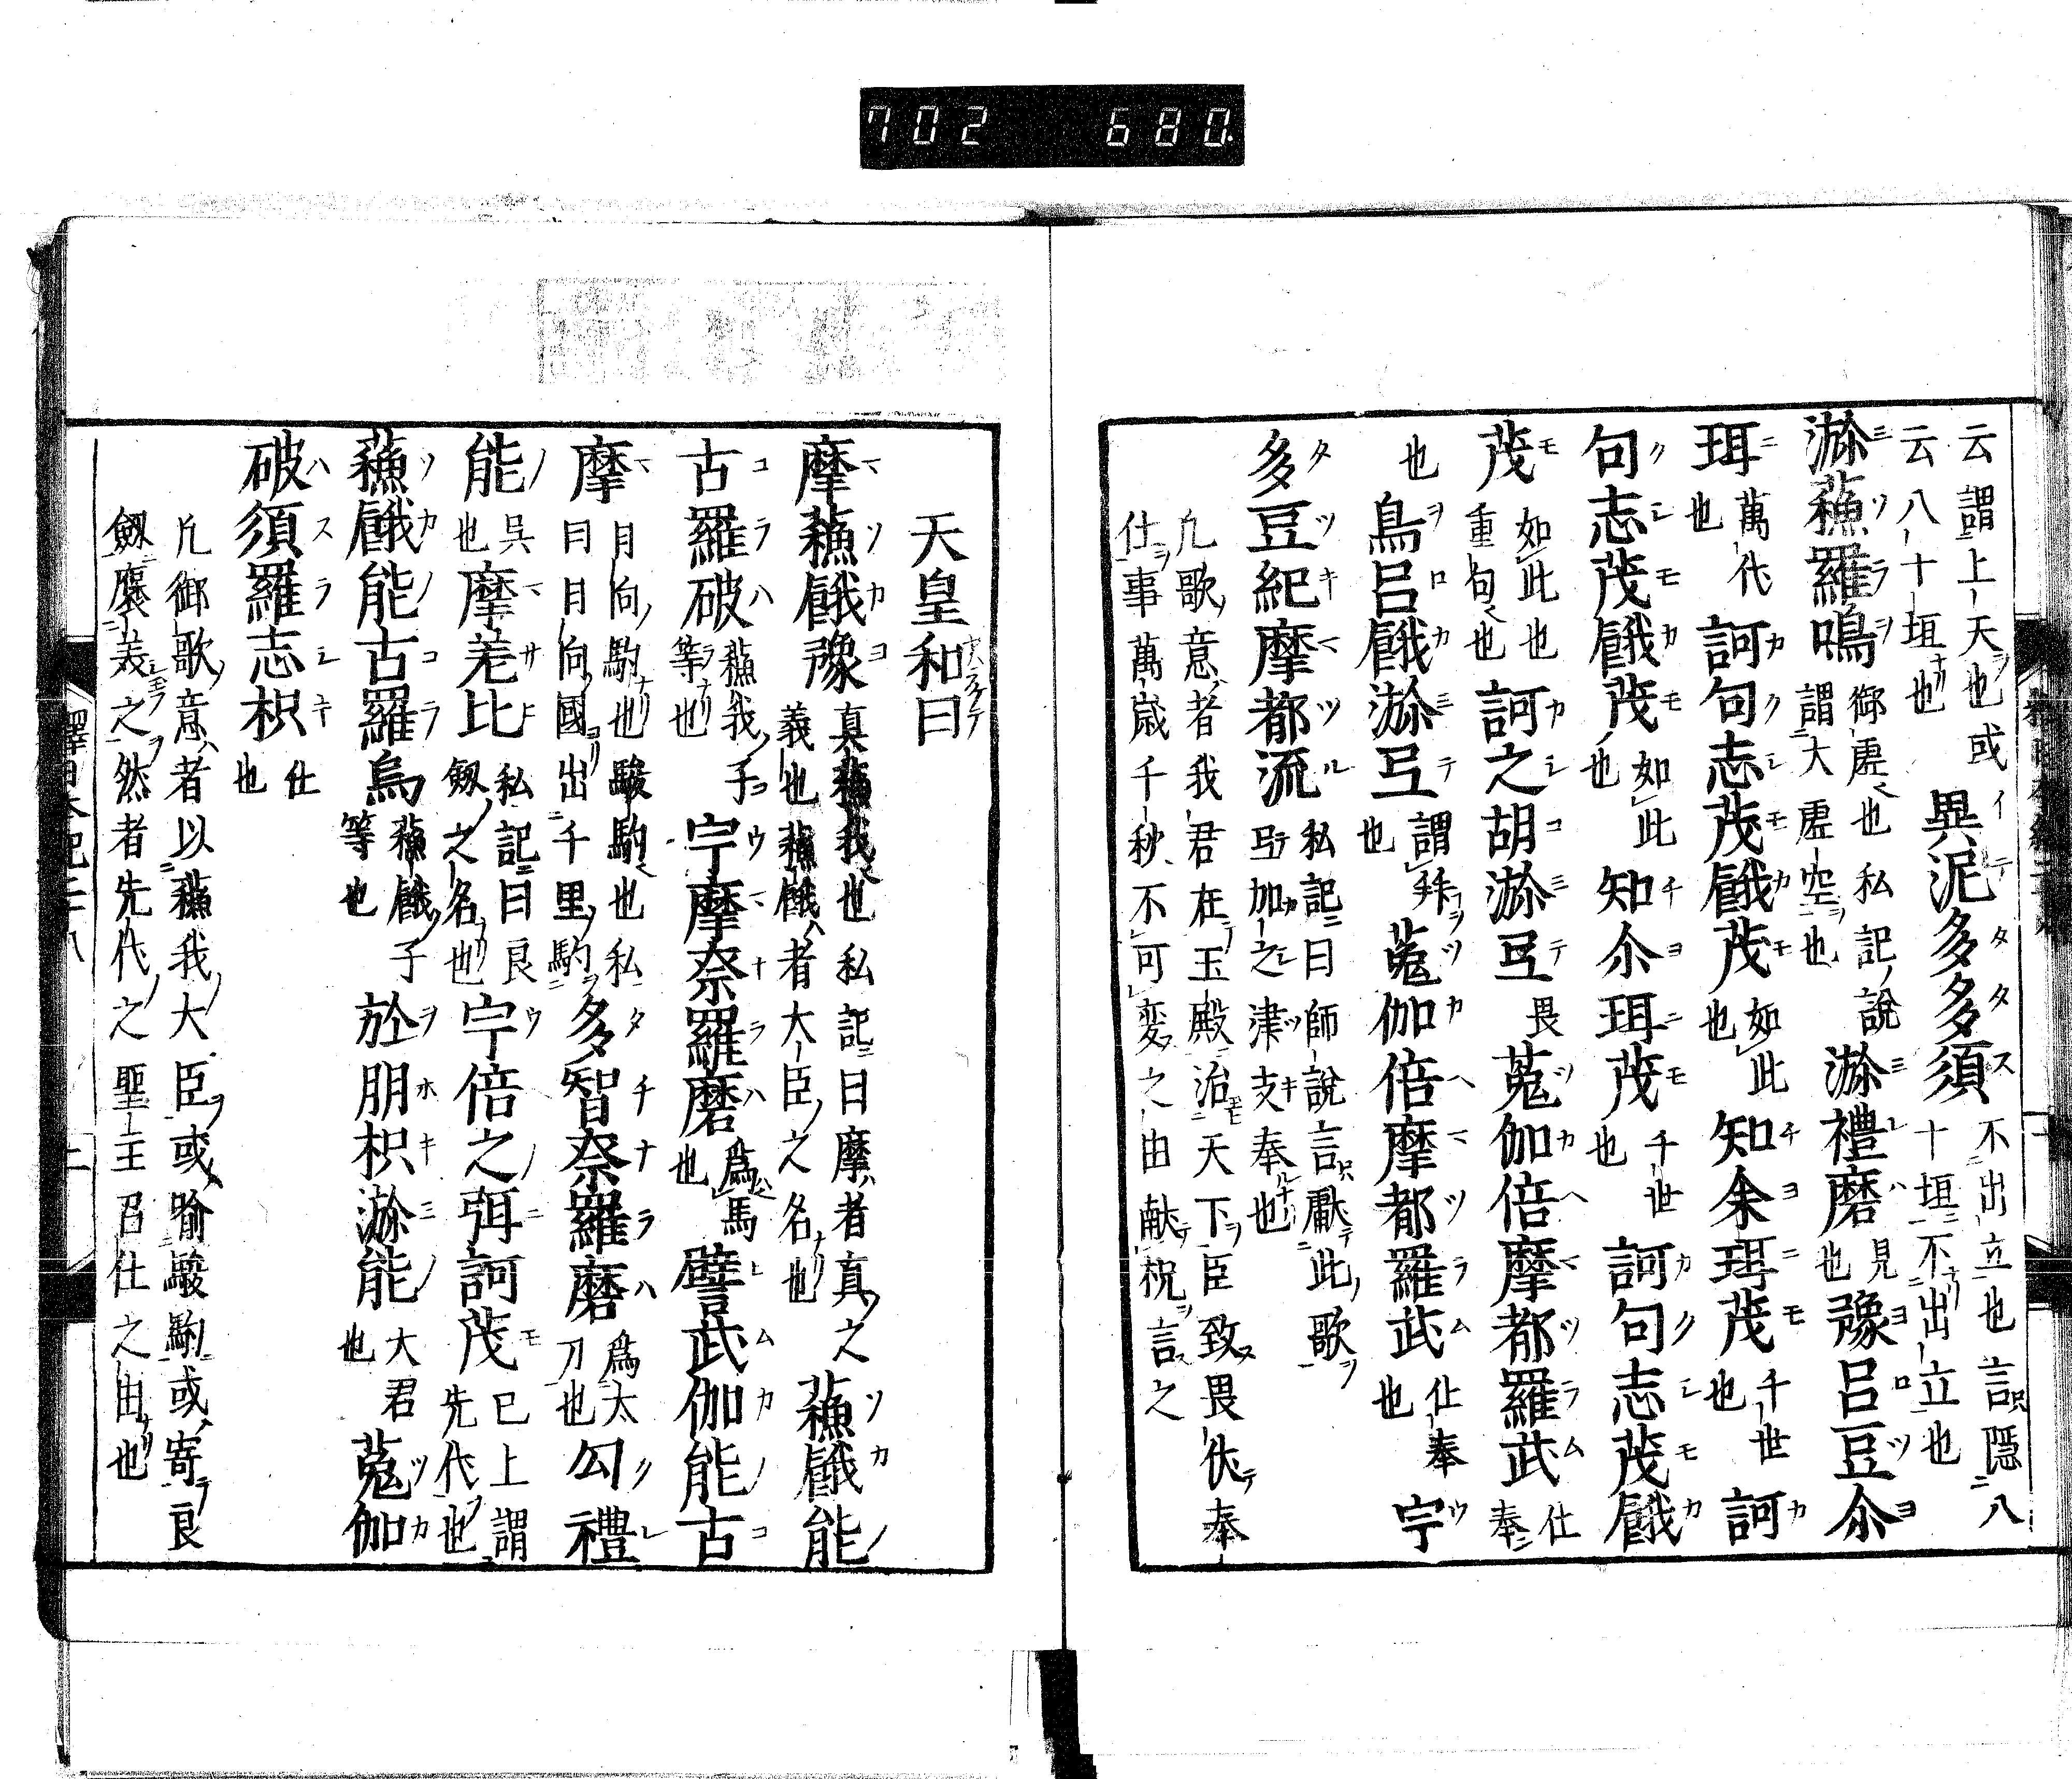 702 680
云謂上天也或異泥多多須不出立也言隱八
云八十垣也十垣不出立也
瀰蘓羅嗚御虛也私記說謂大虛空也瀰禮磨見也豫呂豆余
珥萬代也訶句志茂餓茂如此也知余珥茂千世也訶
句志茂餓茂如此也知余珥茂千世也訶句志茂餓
茂如此也重句也訶之胡瀰弖畏菟伽倍摩都羅武仕奉
也烏呂餓瀰弖謂拜也菟伽倍摩都羅武仕奉也宇
多豆紀摩都流私記曰師說言獻此歌弖加之津支奉也
凢歌意者我君在玉殿治天下臣致畏伏奉
仕事萬歲千秋不可変之由献祝言之
天皇和曰
摩蘓餓豫真蘓我也私記曰摩者真之義也蘓餓者大臣之名也蘓餓能
古羅破蘓我子等也宇摩奈羅磨為馬也譬武伽能古
摩日向駒也駿駒也私記曰日向國出千里駒多智奈羅磨為太刀也勾禮
能呉也摩差比私記曰良劔之名也宇倍之弭訶茂已上謂先代也
蘓餓能古羅烏蘓餓子等也於朋枳瀰能大君也菟伽
破須羅志枳仕也
凡御歌意者以蘓我大臣或喻駿駒或寄良
劔褒義之然者先代之聖主召仕之由也
釋日本紀二十八